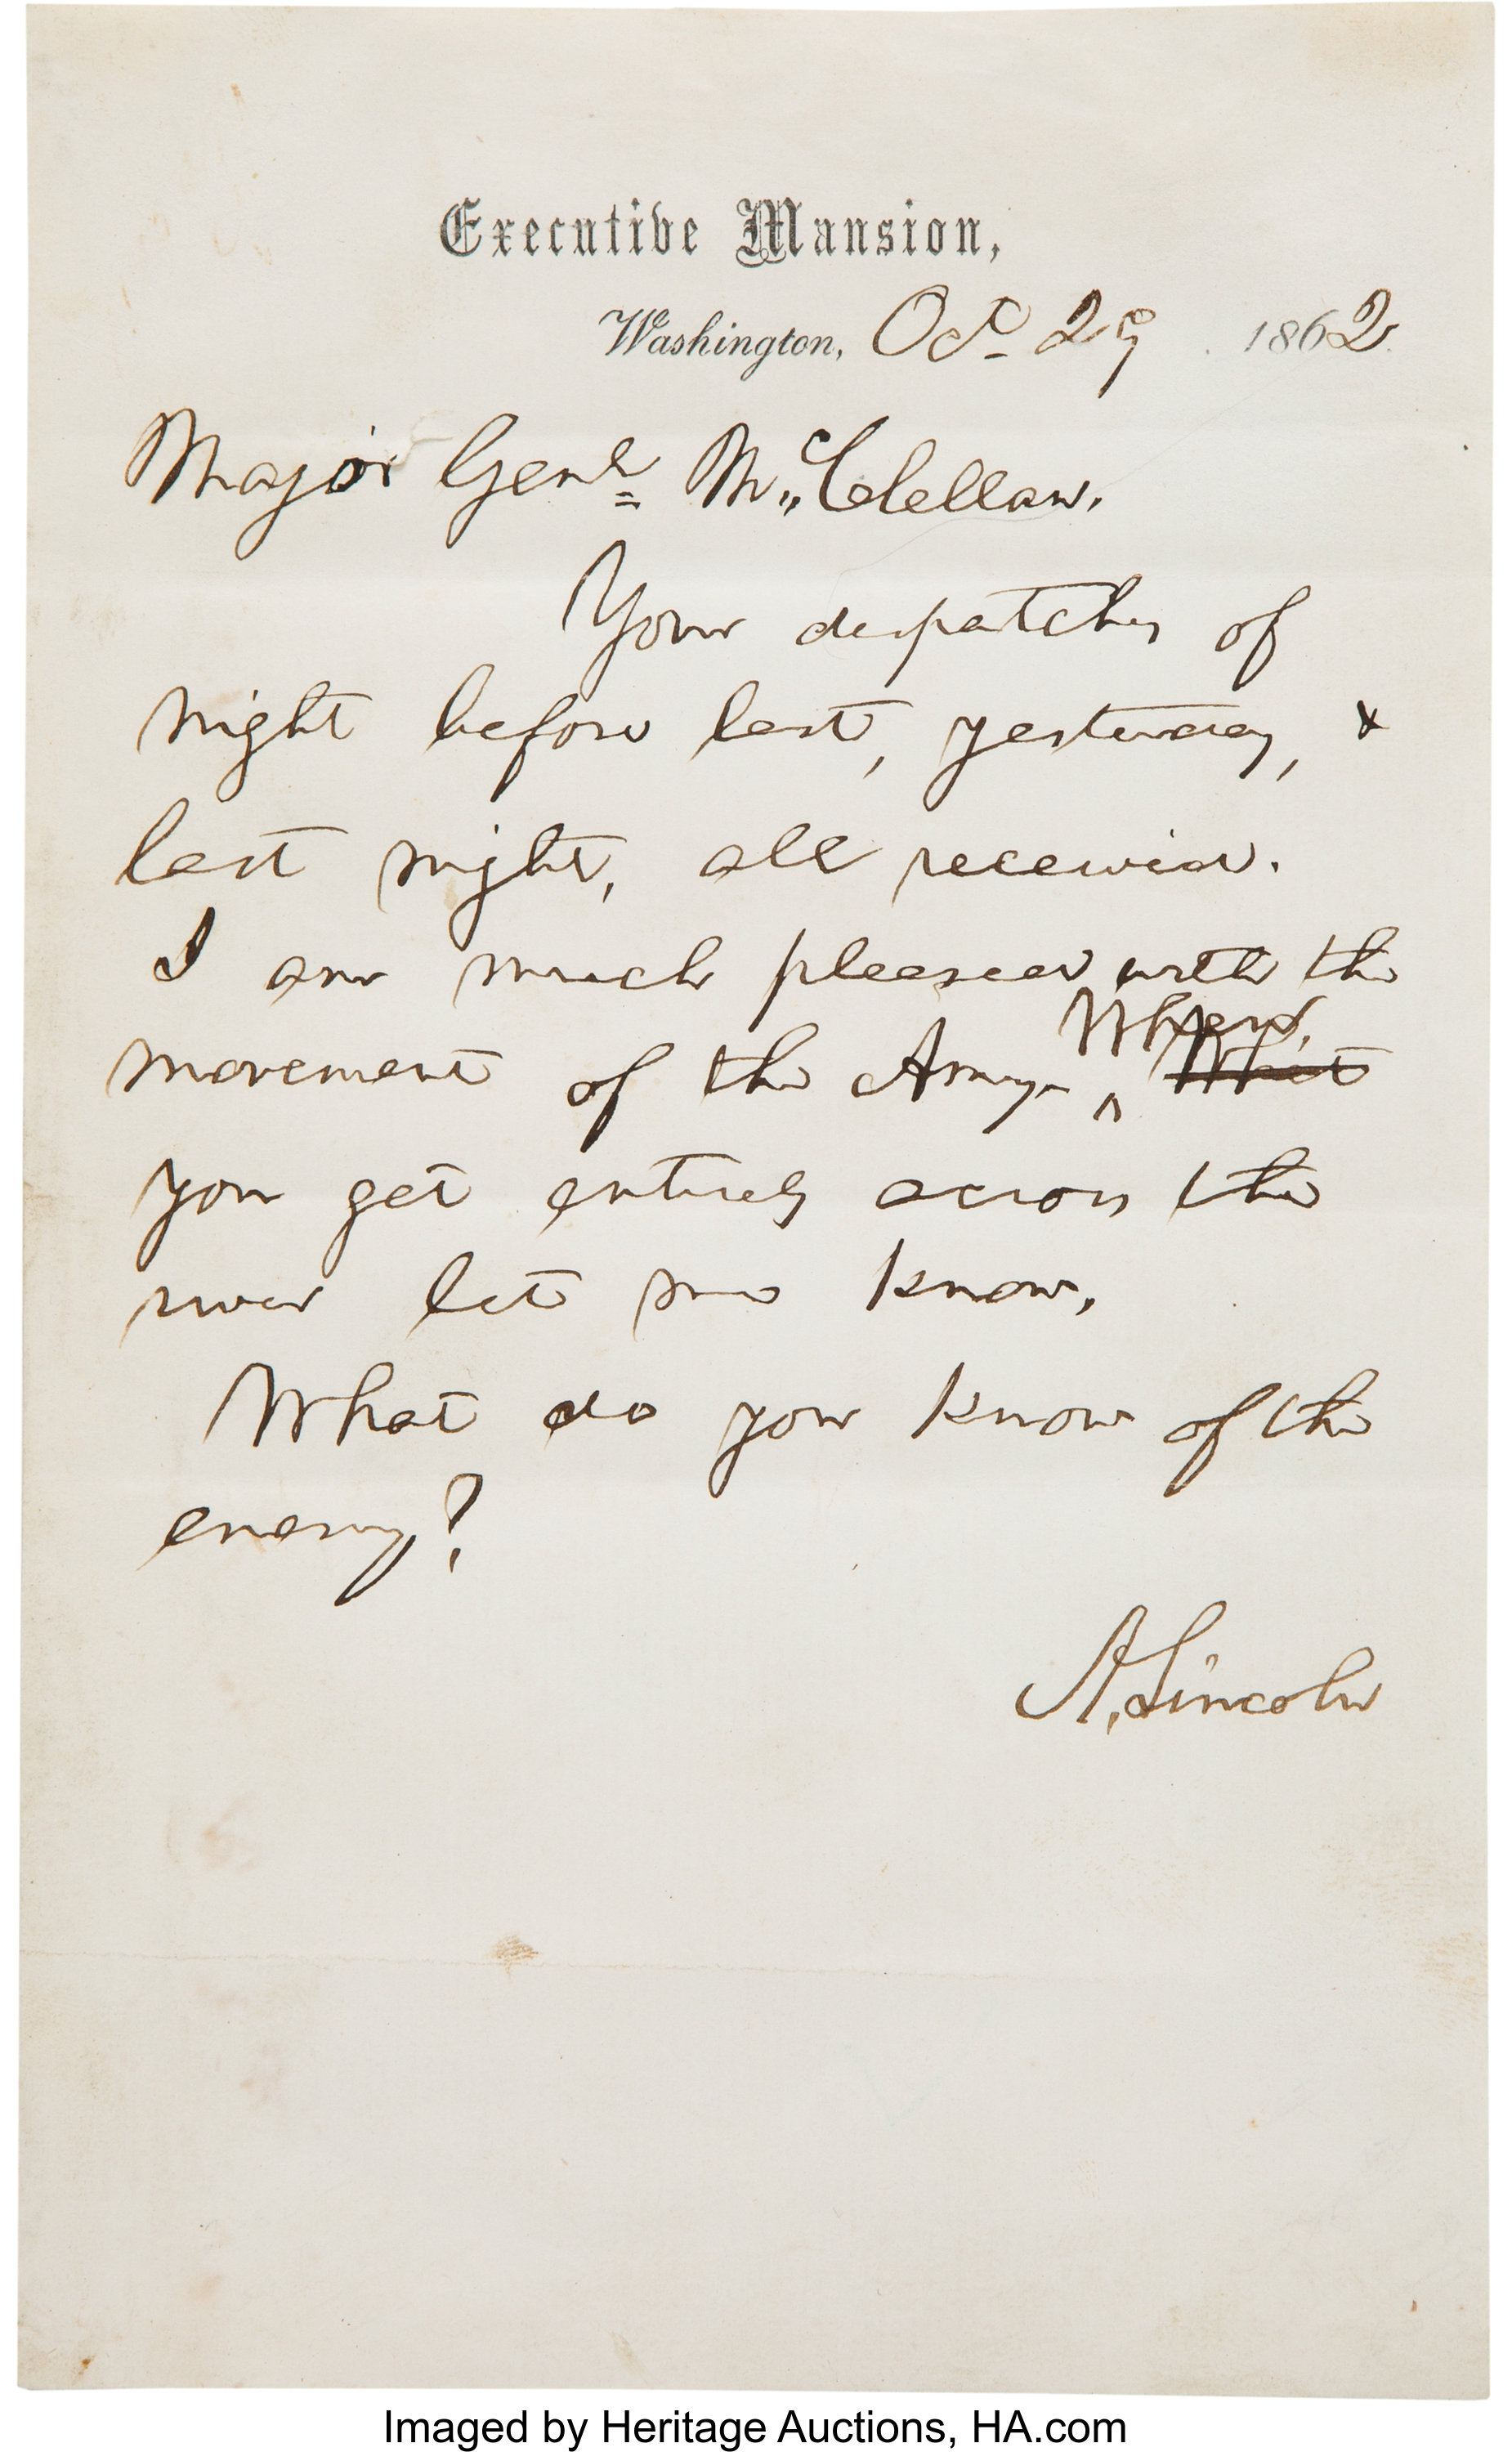 Executive Mansion,
Washington, Oct. 29, 1862.
Major Genl. McClellan.
Your despatches of
night before last, yesterday, &
last night, all received.
I am much pleased with the
When
movement of the Army. ^ What
you get entirely across the
river let me know.
What do you know of the
enemy?
A. Lincoln
Imaged by Heritage Auctions, HA.com